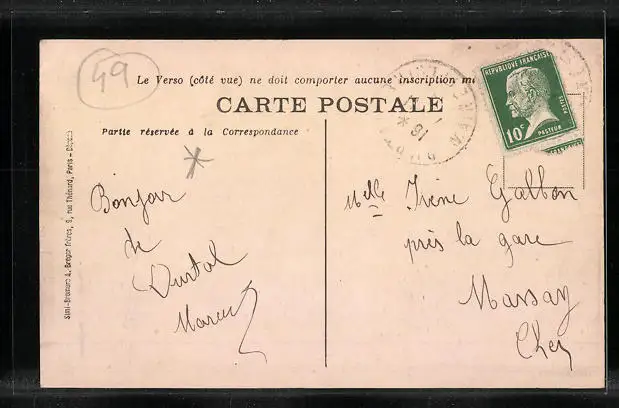 49
Le Verso (côté vue) ne doit comporter aucune inscription
CARTE POSTALE
Partie réservée à la Correspondance
RÉPUBLIQUE FRANÇAISE
10c
POSTES
PASTEUR
Bonjour
de
Durtal
Marcel
Melle Irène Galbon
près la gare
Massay
Cher
Simi-Bromure A. Breger frères, 9, rue Thénard, Paris